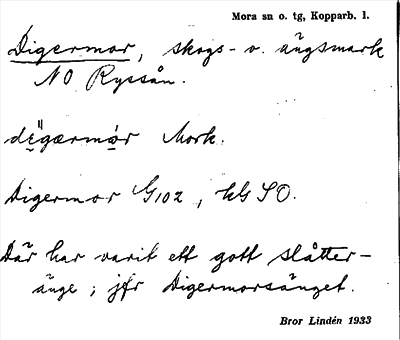 Mora sn o. tg, Kopparb. l.
Digermor, skogs- o. ängsmark
NO Ryssån.
Mork.
Digermor G102, SO.
Där har varit ett gott slåtter-
änge; jfr Digermorsänget.
Bror Lindén 1933